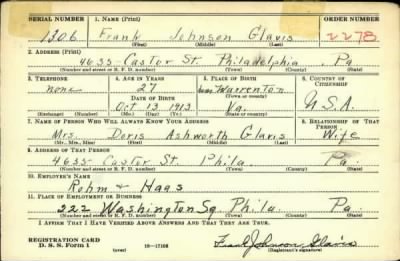 SERIAL NUMBER 1. NAME (Print) ORDER NUMBER
1306 Frank Johnson Glavis 2278
(First) (Middle) (Last)
2. ADDRESS (Print)
4635 Castor St. Philadelphia Pa
(Number and street or R. F. D. number) (Town) (County) (State)
3. TELEPHONE 4. AGE IN YEARS 5. PLACE OF BIRTH 6. COUNTRY OF CITIZENSHIP
none 27 near Warrenton
(Town or county)
DATE OF BIRTH U.S.A.
Oct 13 1913 Va.
(Mo.) (Day) (Yr.) (State or country)
7. NAME OF PERSON WHO WILL ALWAYS KNOW YOUR ADDRESS 8. RELATIONSHIP OF THAT PERSON
Mrs. Doris Ashworth Glavis Wife
(Mr., Mrs., Miss) (First) (Middle) (Last)
9. ADDRESS OF THAT PERSON
4635 Castor St. Phila. Pa.
(Number and street or R. F. D. number) (Town) (County) (State)
10. EMPLOYER'S NAME
Rohm & Haas
11. PLACE OF EMPLOYMENT OR BUSINESS
222 Washington Sq. Phila. Pa.
(Number and street or R. F. D. number) (Town) (County) (State)
I AFFIRM THAT I HAVE VERIFIED ABOVE ANSWERS AND THAT THEY ARE TRUE.
REGISTRATION CARD
D. S. S. Form 1 (over) 16—17105 Frank Johnson Glavis
(Registrant's signature)